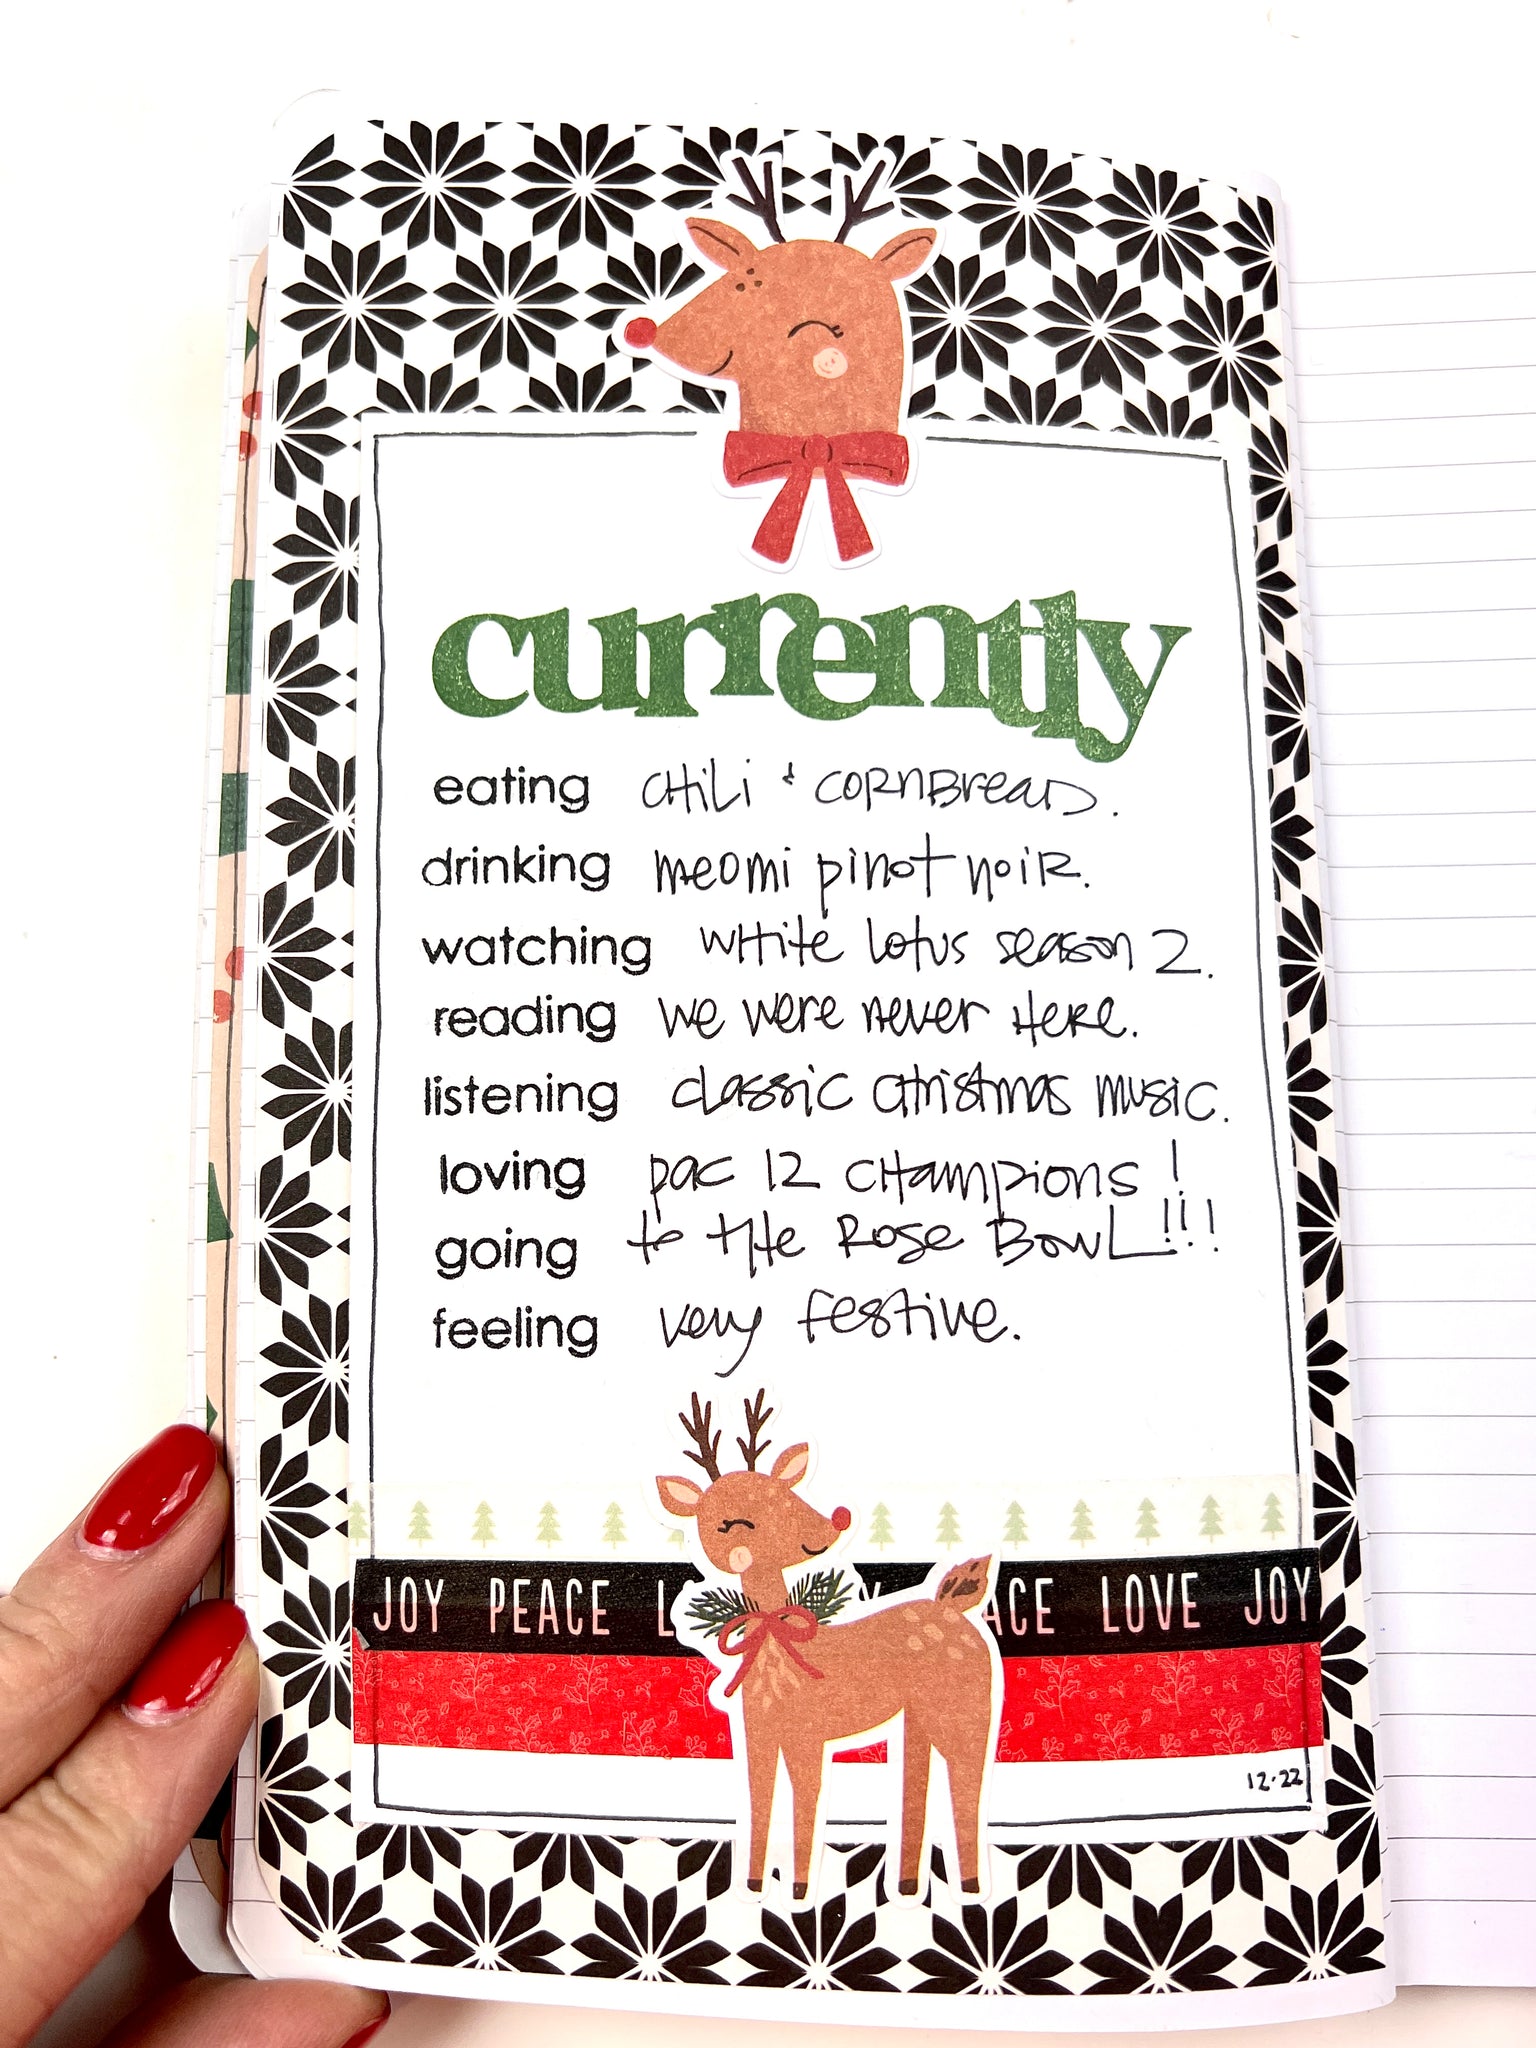 currently
eating CHiLi + CORNBREAD.
drinking meomi pinot noir.
watching WHite lotus season 2.
reading We Were never Here.
listening classic CHristmas music.
loving pac 12 CHampions!
going to tHe Rose Bowl!!!
feeling very festive.
JOY PEACE L Y ACE LOVE JOY
12.22